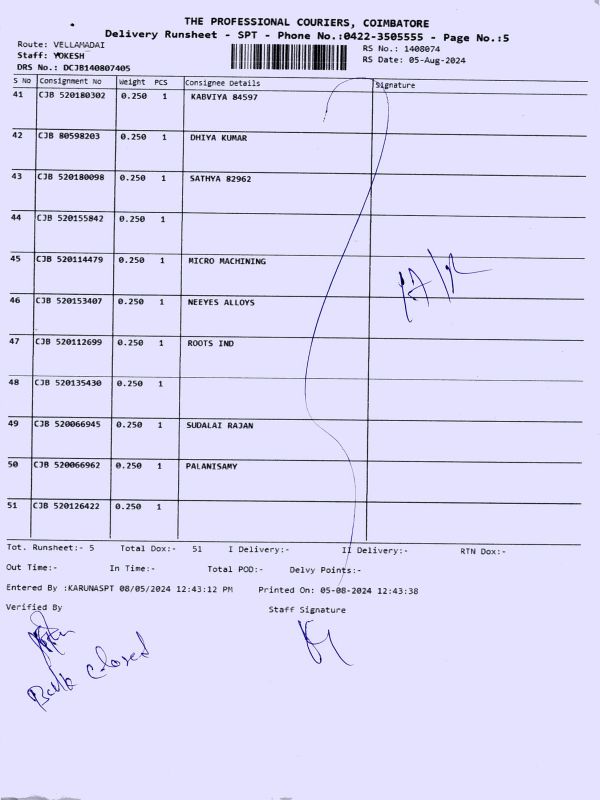 THE PROFESSIONAL COURIERS, COIMBATORE
Delivery Runsheet - SPT - Phone No.:0422-3505555 - Page No.:5
Route: VELLAMADAI
RS No.: 1408074
Staff: YOKESH
RS Date: 05-Aug-2024
DRS No.: DCJB140807405
S No Consignment No Weight PCS Consignee Details Signature
41 CJB 520180302 0.250 1 KABVIYA 84597
42 CJB 80598203 0.250 1 DHIYA KUMAR
43 CJB 520180098 0.250 1 SATHYA 82962
44 CJB 520155842 0.250 1
45 CJB 520114479 0.250 1 MICRO MACHINING
46 CJB 520153407 0.250 1 NEEYES ALLOYS
47 CJB 520112699 0.250 1 ROOTS IND
48 CJB 520135430 0.250 1
49 CJB 520066945 0.250 1 SUDALAI RAJAN
50 CJB 520066962 0.250 1 PALANISAMY
51 CJB 520126422 0.250 1
Tot. Runsheet:- 5 Total Dox:- 51 I Delivery:- II Delivery:- RTN Dox:-
Out Time:- In Time:- Total POD:- Delvy Points:-
Entered By :KARUNASPT 08/05/2024 12:43:12 PM Printed On: 05-08-2024 12:43:38
Verified By Staff Signature
closed